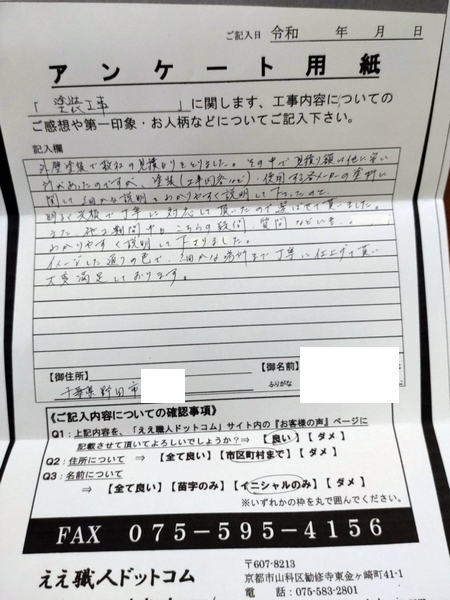 ご記入日 令和 年 月 日
アンケート用紙
「 塗装工事 」に関します、工事内容についての
ご感想や第一印象・お人柄などについてご記入下さい。
記入欄
外壁塗装で数社の見積りをとりました。その中で見積り額は他に安い
社があったのですが、塗装(工事内容など)・使用する各メーカーの塗料に
関して細かな説明をわかりやすく説明して下さったので、
明るく笑顔で丁寧に対応して頂いたので選ばせて頂きました。
また、施工期間中もこちらの疑問、質問などにも、
わかりやすく説明して下さりました。
イメージした通りの色で、細かな場所まで丁寧に仕上げて頂い
大変満足しております。
【御住所】 【御名前】
千葉県野田市 ふりがな
《ご記入内容についての確認事項》
Q1：上記内容を、「ええ職人ドットコム」サイト内の『お客様の声』ページに
記載させて頂いてよろしいでしょうか？⇒ 【良い】【ダメ】
Q2：住所について ⇒ 【全て良い】【市区町村まで】【ダメ】
Q3：名前について
⇒ 【全て良い】【苗字のみ】【イニシャルのみ】【ダメ】
※いずれかの枠を丸で囲んでください。
FAX 075-595-4156
ええ職人ドットコム
〒607-8213
京都市山科区勧修寺東金ヶ崎町41-1
電 話：075-583-2801